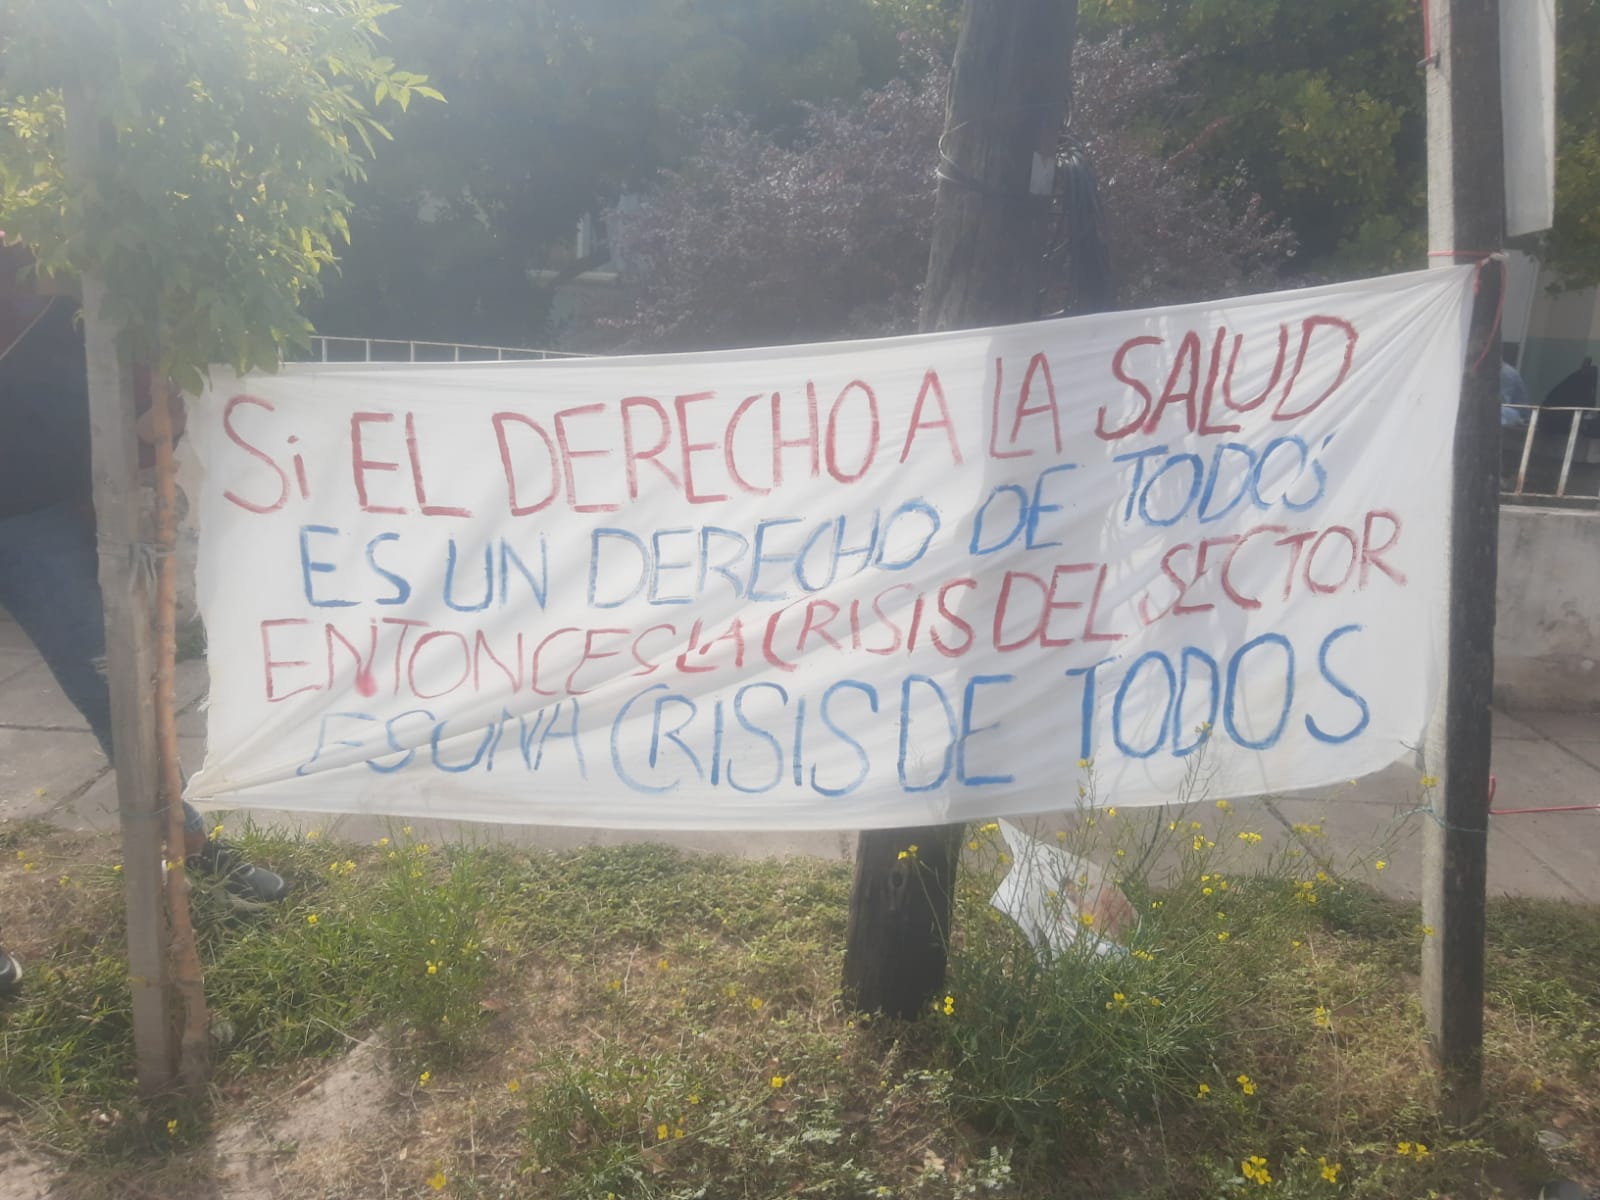 Si EL DERECHO A LA SALUD
ES UN DERECHO DE TODOS
ENTONCES LA CRISIS DEL SECTOR
ES UNA CRISIS DE TODOS